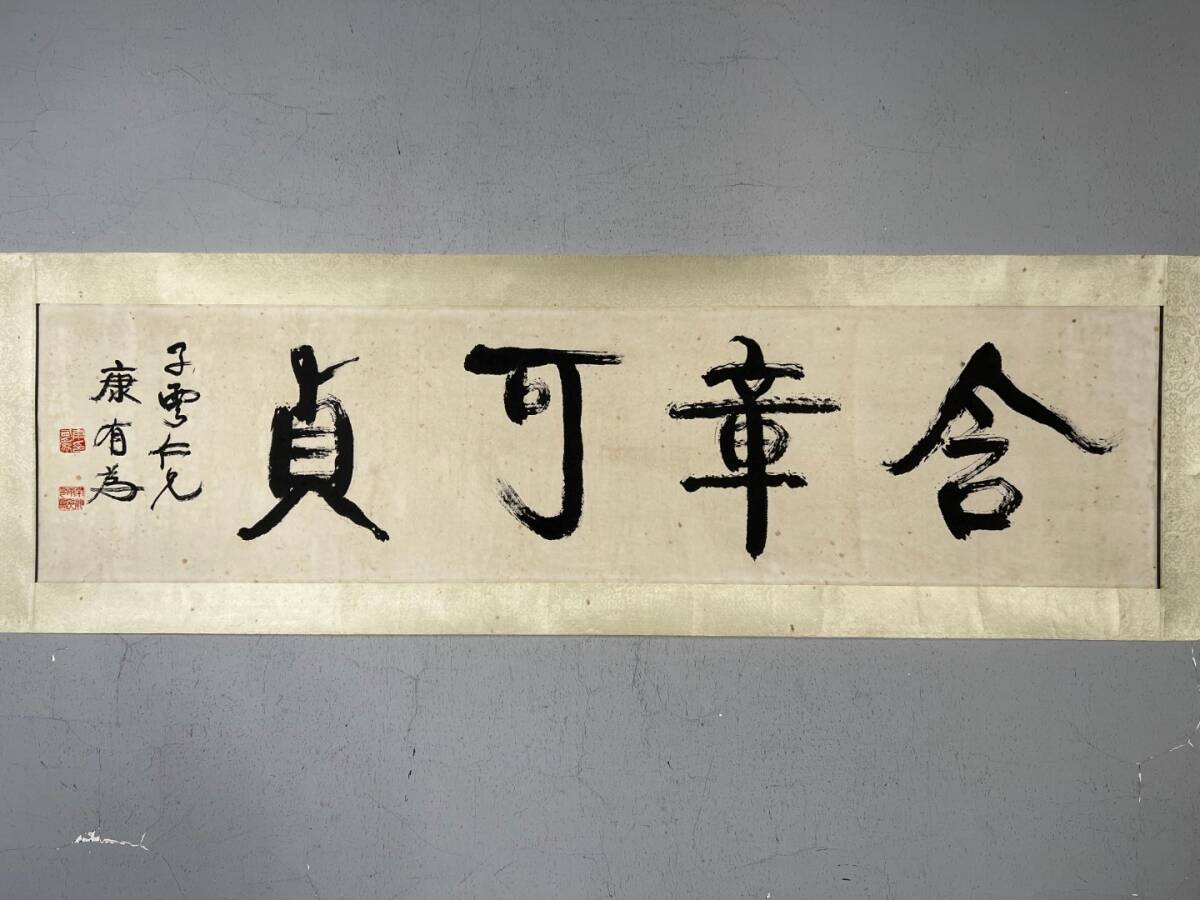 含章可貞
子雲仁兄
康有為